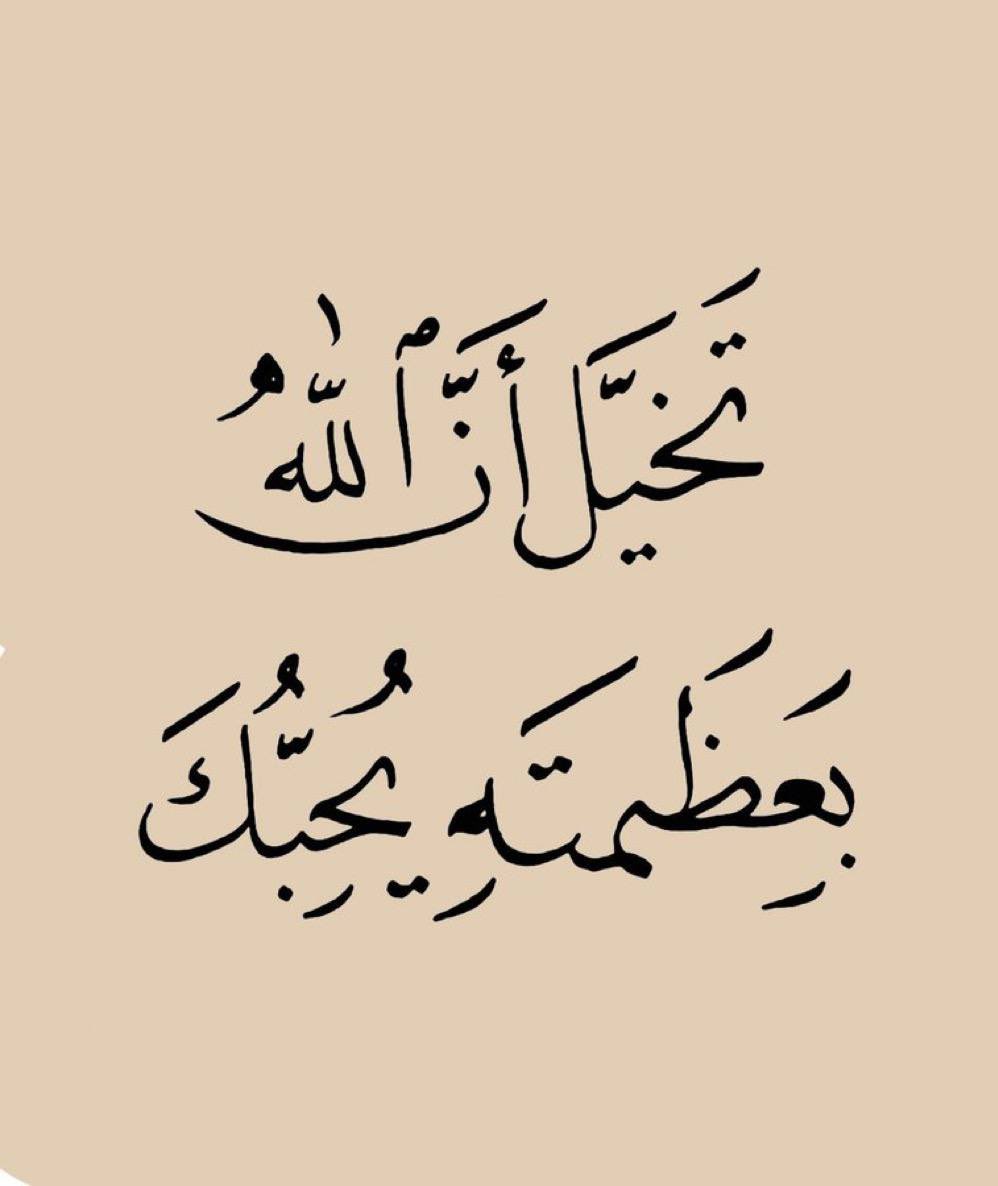 تَخيَّلَ أنَّ ٱللّٰهُ
بِعَظَمتَهِ يُحِبُّكَ